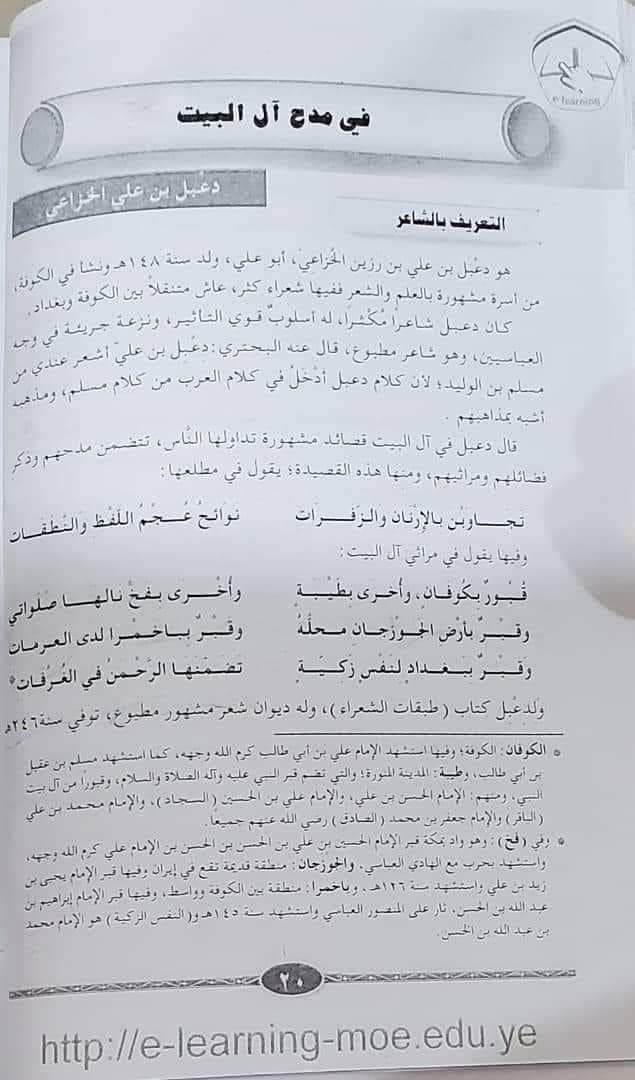 e-learning
في مدح آل البيت
دعْبل بن علي الخزاعي
التعريف بالشاعر
هو دعْبل بن علي بن رزين الخُزاعيّ، أبو علي، ولد سنة ١٤٨هـ ونشأ في الكوفة،
من أسرة مشهورة بالعلم والشعر ففيها شعراء كثر، عاش متنقلاً بين الكوفة وبغداد.
كان دعبل شاعراً مُكْثِراً، له أسلوبٌ قوي التأثير، ونزعة جريئة في وجه
العباسيين، وهو شاعر مطبوع، قال عنه البحتري: دعْبل بن عليّ أشعر عندي من
مسلم بن الوليد؛ لأن كلام دعبل أدْخلُ في كلام العرب من كلام مسلم، ومذهبه
أشبه بمذاهبهم .
قال دعبل في آل البيت قصائد مشهورة تداولها النَّاس، تتضمن مدحهم وذكر
فضائلهم ومراثيهم، ومنها هذه القصيدة؛ يقول في مطلعها:
تجَـاوبْن بالإرْنان والـزَفـرات نَوائحُ عُـجْمُ اللَفظ والنَّطقـات
وفيها يقول في مراثي آل البيت:
قُبورٌ بكُوفانٍ، وأخرى بطَيْبةٍ وأُخْـرى بفَخٍّ نالهـا صلواتي
وقبرٌ بأرْضِ الجُوزجان محلُّهُ وقبْـرٌ بـباخمْـرا لدى العرمات
وقبْرٌ ببغـدادٍ لنفْسٍ زكيّـةٍ تضمّنَهـا الرَّحْمنُ في الغُرفات*
ولدعْبل كتاب (طبقات الشعراء)، وله ديوان شعر مشهور مطبوع، توفي سنة ٢٤٦هـ
* الكوفان: الكوفة؛ وفيها استشهد الإمام علي بن أبي طالب كرم الله وجهه، كما استشهد مسلم بن عقيل
بن أبي طالب، وطيبة: المدينة المنورة؛ والتي تضم قبر النبي عليه وآله الصلاة والسلام، وقبوراً من آل بيت
النبي، ومنهم: الإمام الحسن بن علي، والإمام علي بن الحسين (السجاد)، والإمام محمد بن علي
(الباقر) والإمام جعفر بن محمد (الصادق) رضي الله عنهم جميعًا.
* وفي (فخ): وهو واد بمكة قبر الإمام الحسين بن علي بن الحسن بن الحسن بن الإمام علي كرم الله وجهه،
واستشهد بحرب مع الهادي العباسي. والجوزجان: منطقة قديمة تقع في إيران وفيها قبر الإمام يحيى بن
زيد بن علي واستشهد سنة ١٢٦هـ. وباخمرا: منطقة بين الكوفة وواسط، وفيها قبر الإمام إبراهيم بن
عبد الله بن الحسن، ثار على المنصور العباسي واستشهد سنة ١٤٥هـ و(النفس الزكية) هو الإمام محمد
بن عبد الله بن الحسن.
٢٠
http://e-learning-moe.edu.ye